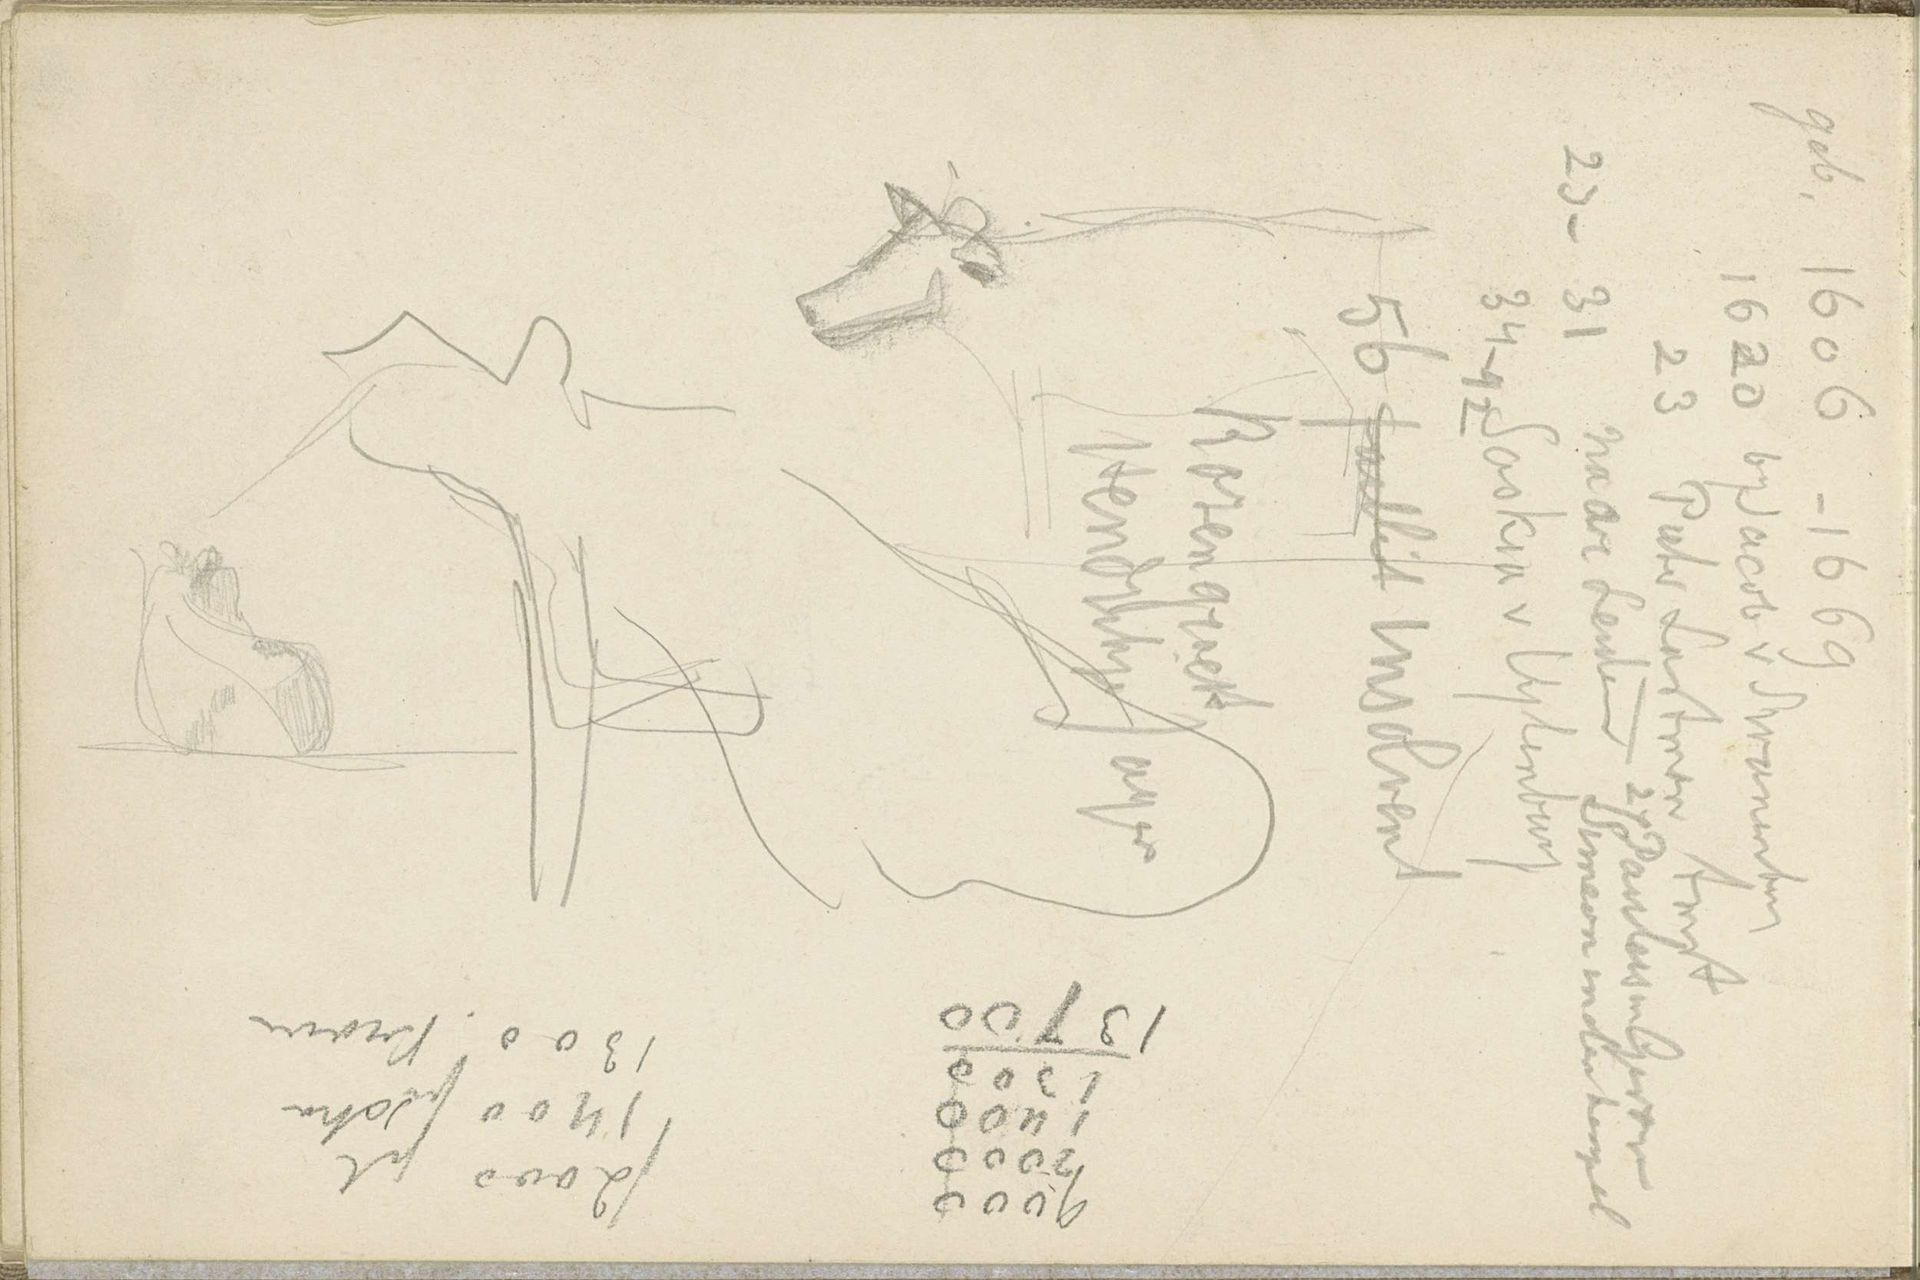 geb. 1606 - 1669
1620 by Jacob v Swanenburg
23 Pieter Lastman Amst
23 - 31 naar Leiden 27 Paulus in Gevang
Simeon in den tempel
34-42 Saskia v Uylenburg
56 failliet Insolvent
Rozengracht
Hendrikje Jager
9000
2000
1400
1300
13700
2000
1400
1300.